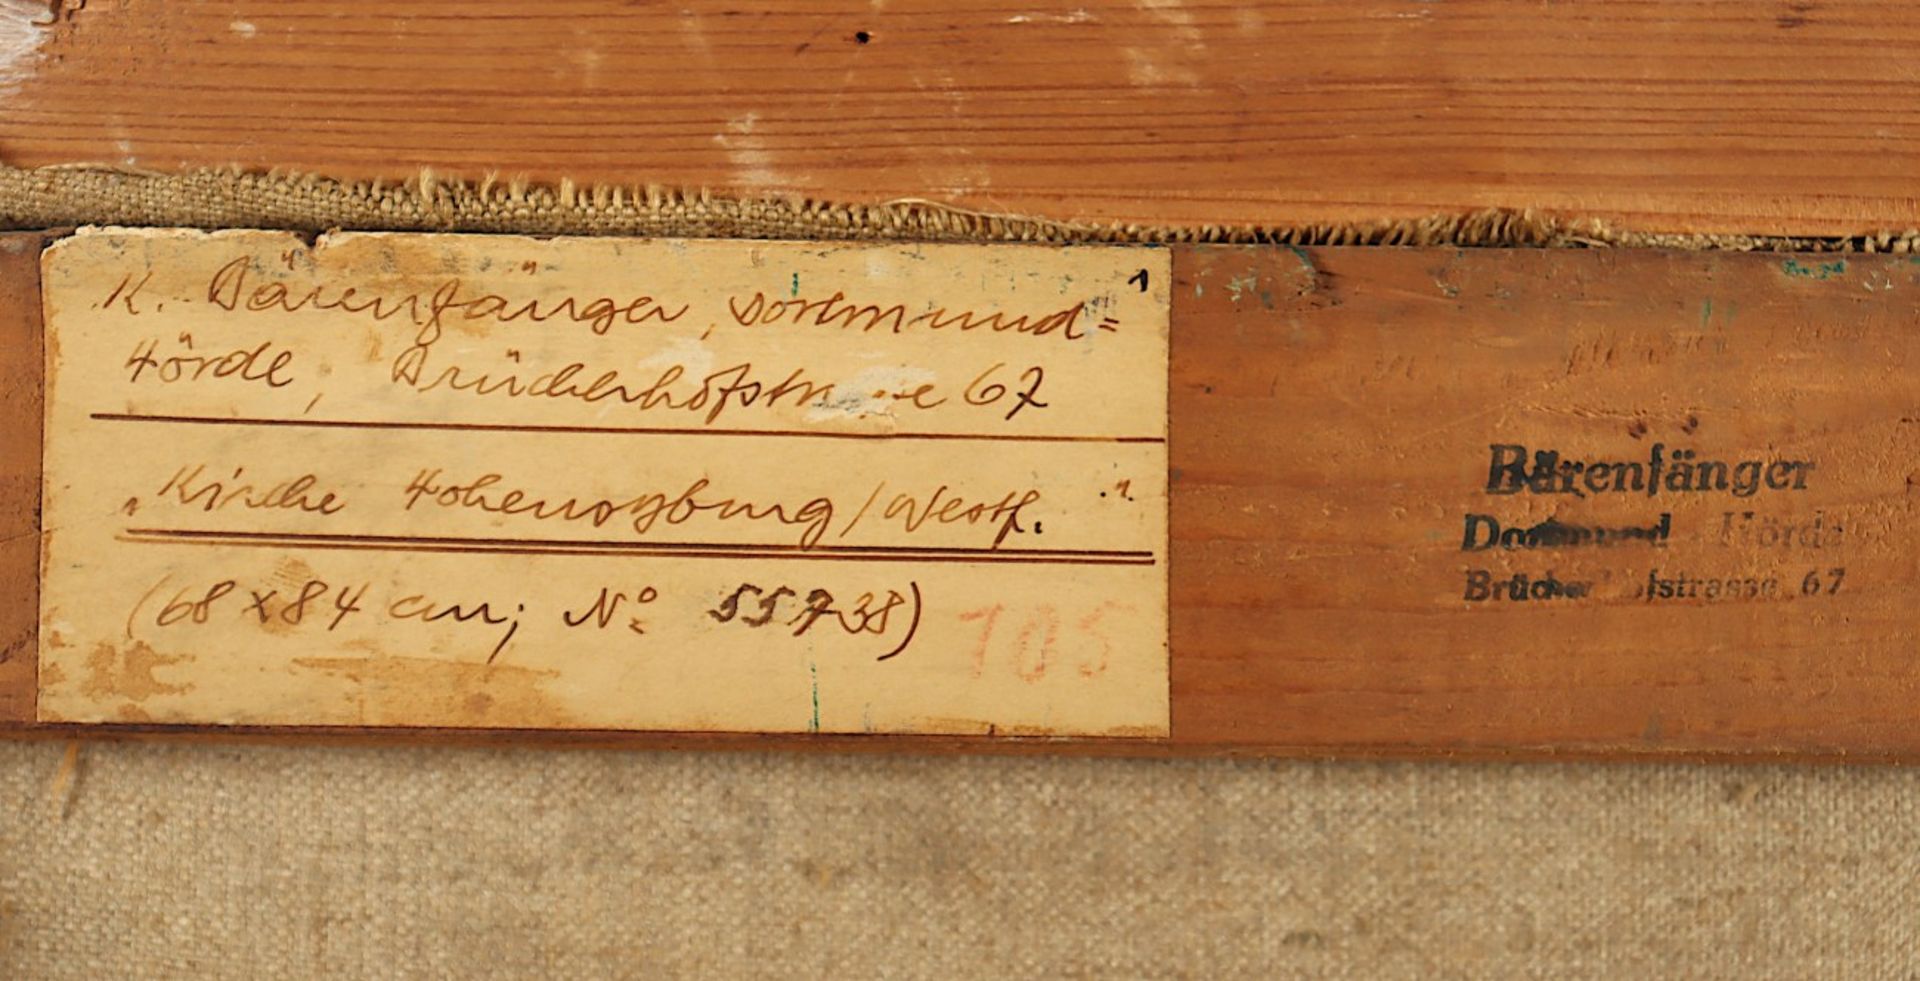 1
K. Bärenfänger, Dortmund=
Hörde, Brücherhofstrasse 67
„Kirche Hohensyburg/Westf."
(68 x 84 cm; No 55738)
705
Bärenfänger
Dortmund - Hörde
Brücherhofstrasse 67